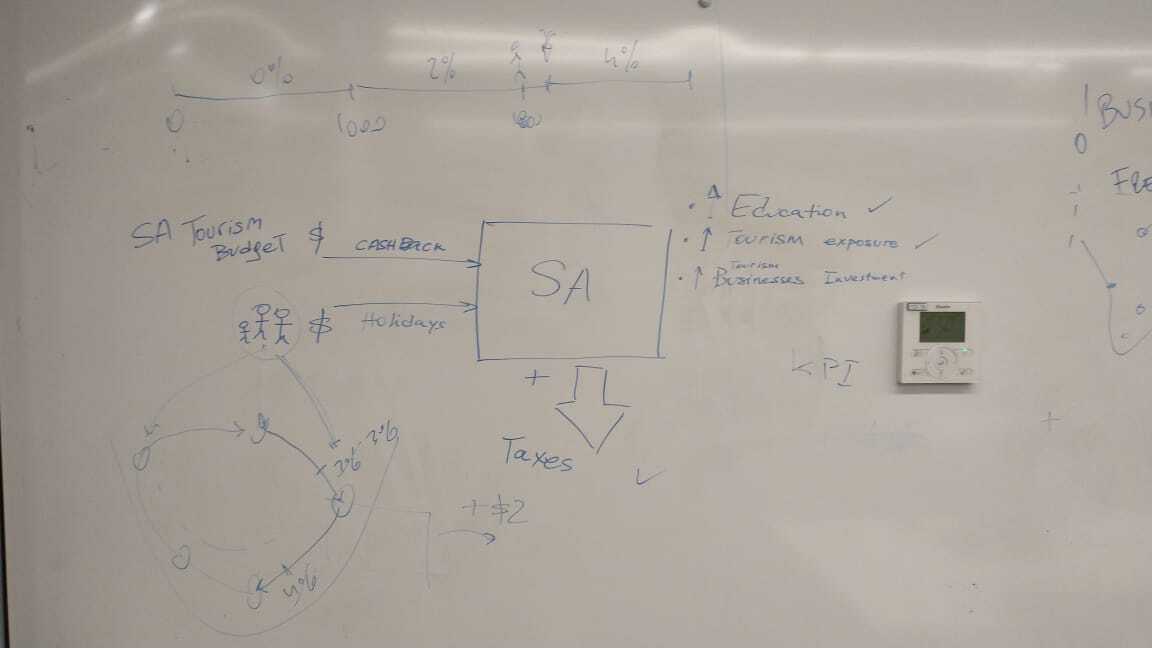 0% 2% 4%
0 1000
SA Tourism
Budget $ CASHBACK
$ Holidays
SA
• ↑ Education ✓
• ↑ Tourism exposure ✓
Tourism
• ↑ Businesses Investment
KPI
+
Taxes
✓
3% - 3%
+ $2
4%
BUSI
0
FRE
+